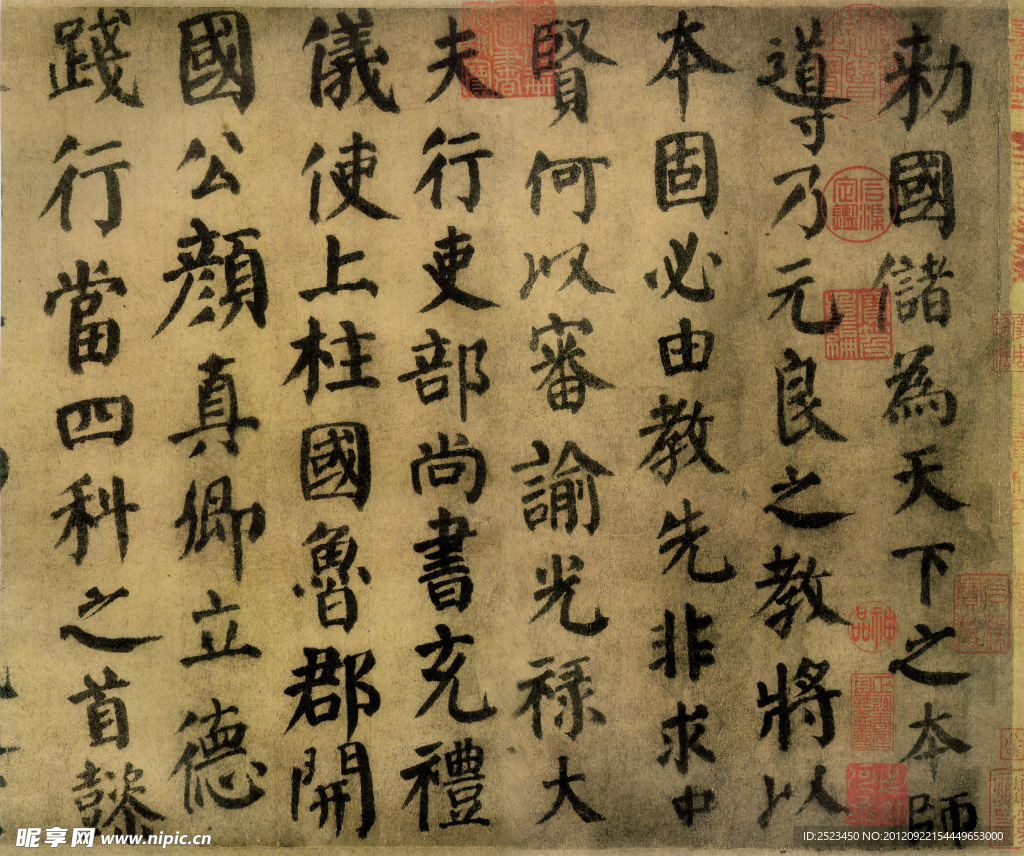 勑國儲為天下之本師
導乃元良之教將以
本固必由教先非求中
賢何以審諭光祿大
夫行吏部尚書充禮
儀使上柱國魯郡開
國公顏真卿立德
踐行當四科之首懿
昵享网 www.nipic.cn
ID:2523450 NO:20120922154449653000